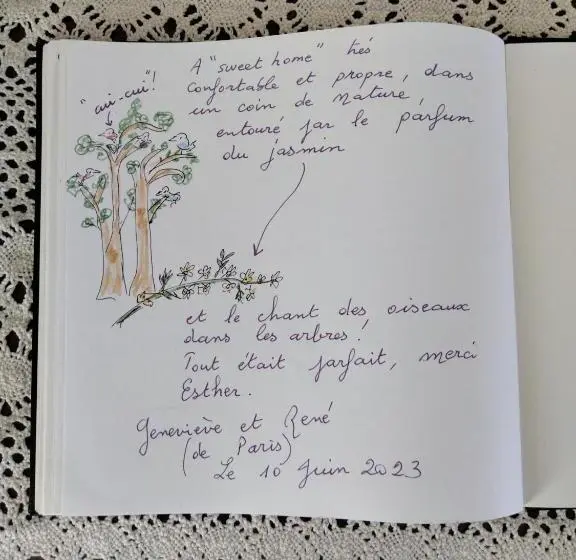 "cui-cui"!
A "sweet home" très
confortable et propre, dans
un coin de nature,
entouré par le parfum
du jasmin
et le chant des oiseaux
dans les arbres!
Tout était parfait, merci
Esther.
Geneviève et René
(de Paris)
Le 10 Juin 2023